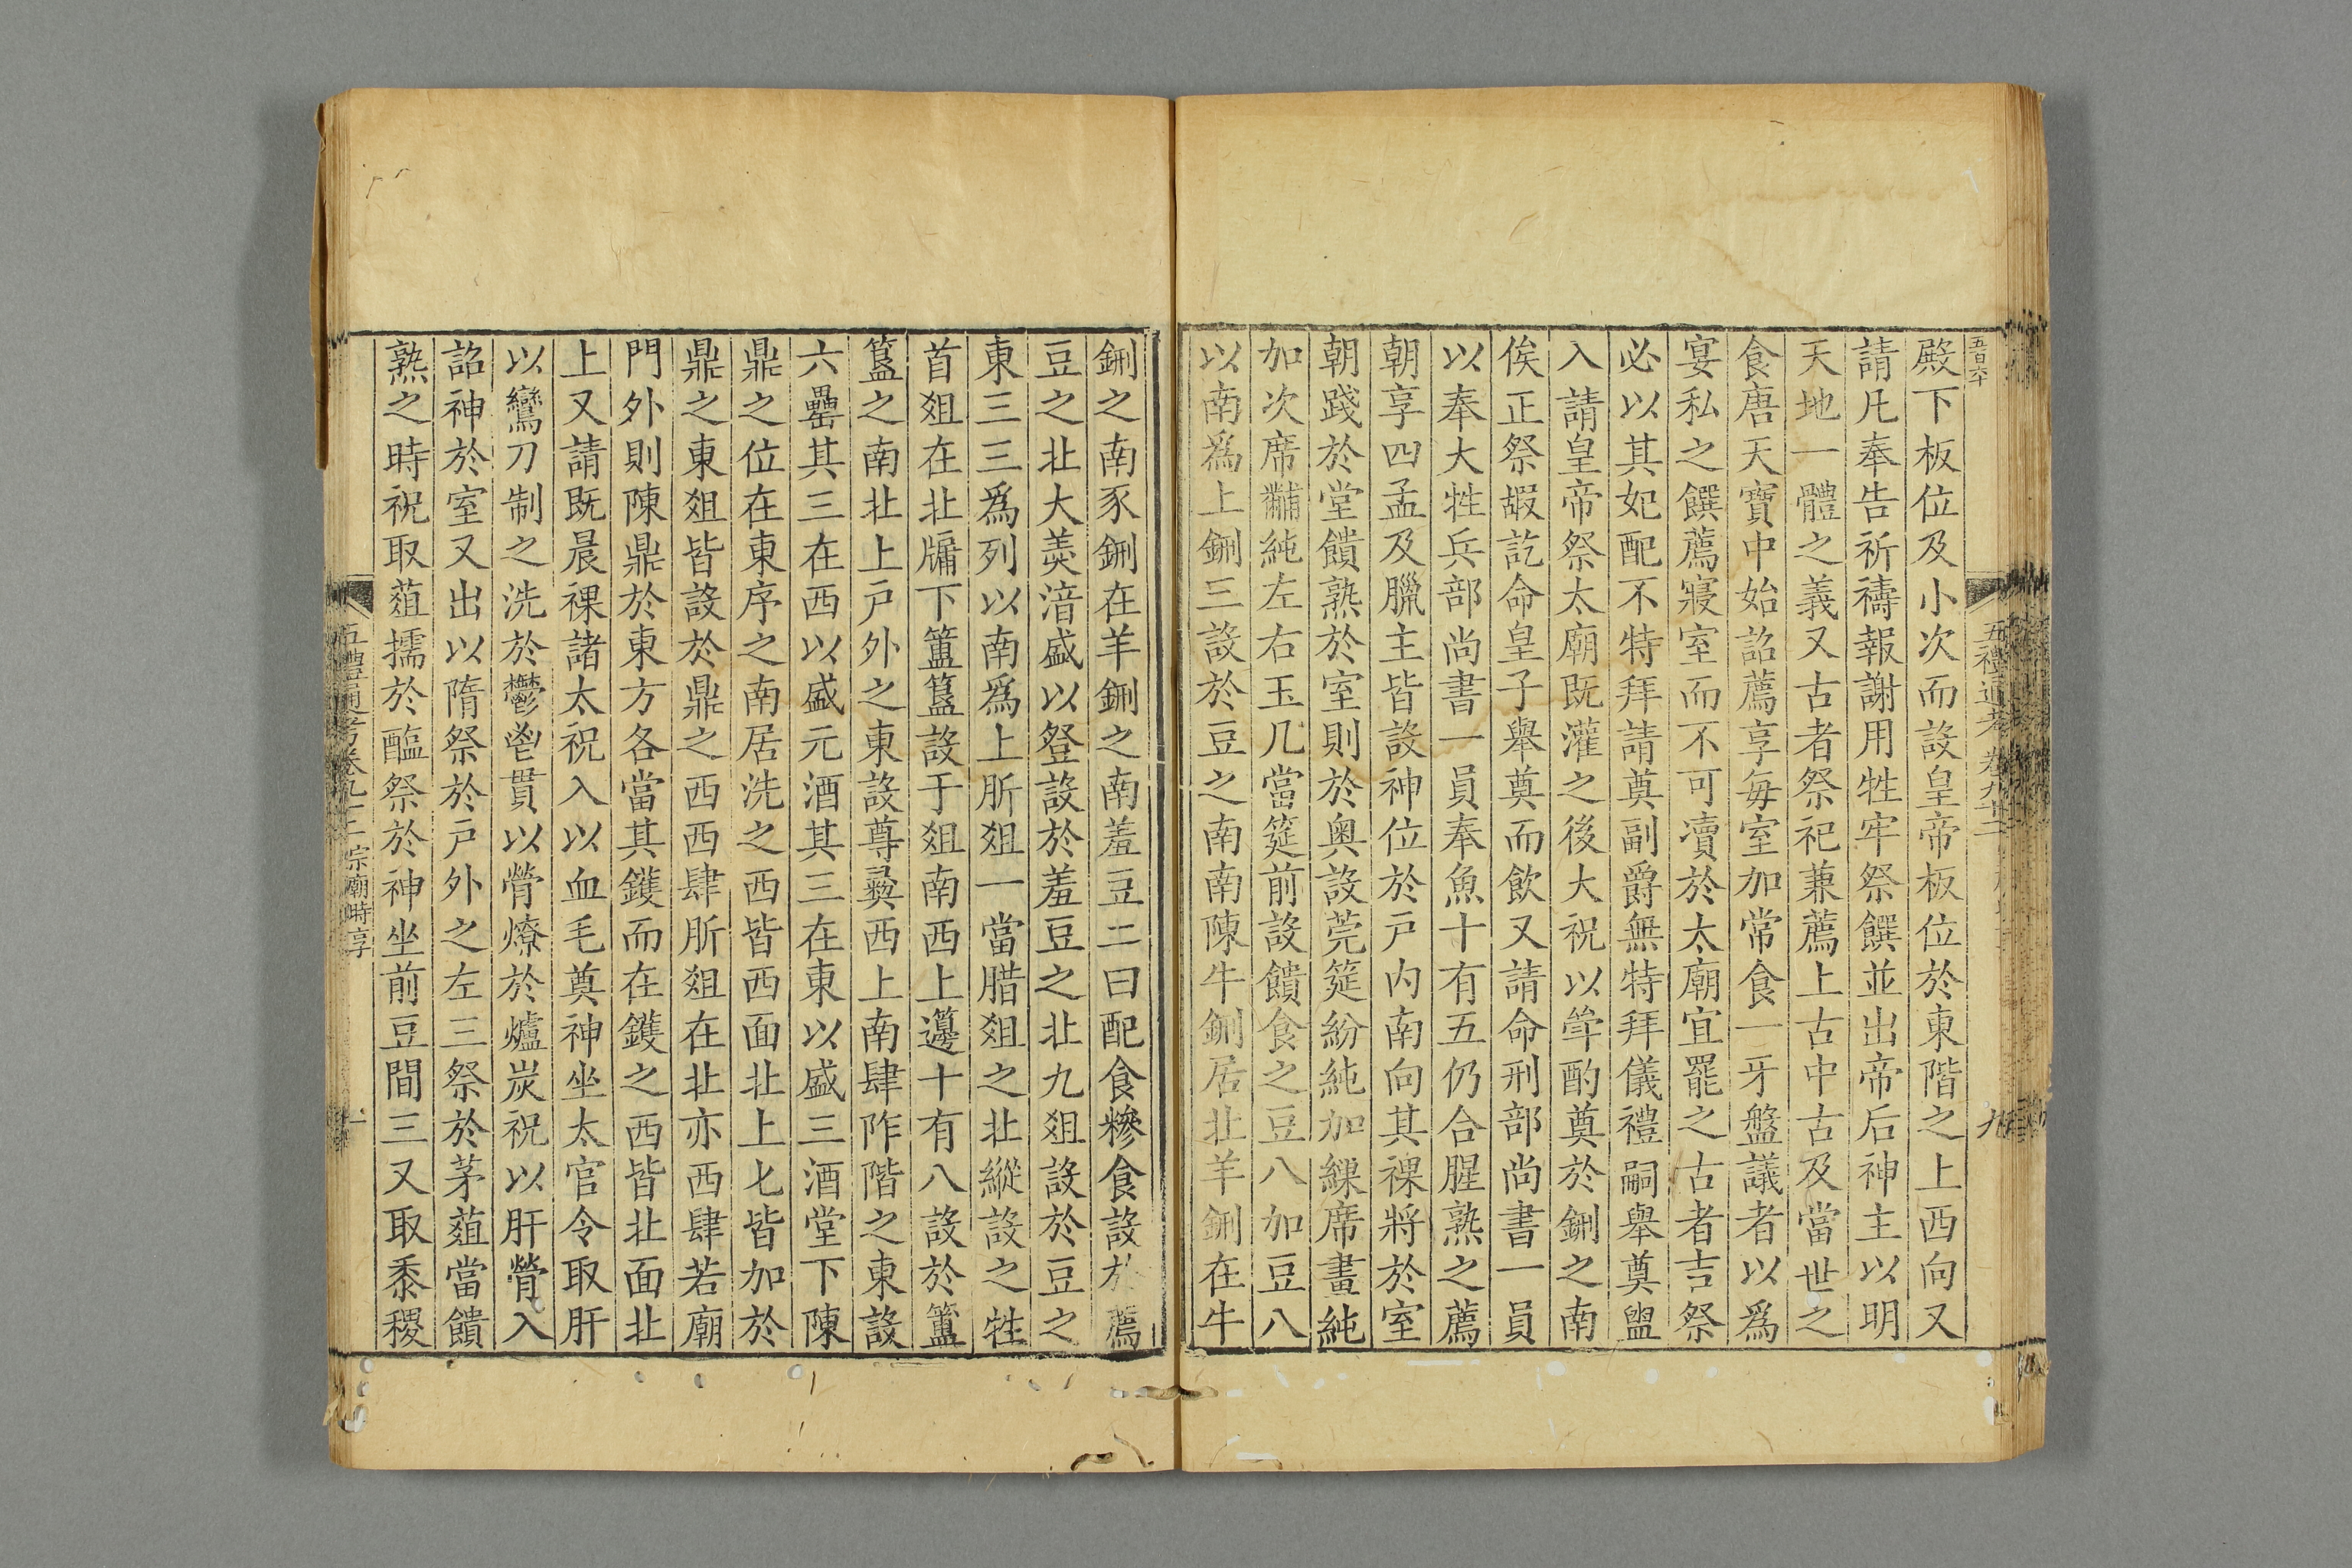 五百六十
五禮通考 卷九十二
九
殿下板位及小次而設皇帝板位於東階之上西向又
請凡奉告祈禱報謝用牲牢祭饌並出帝后神主以明
天地一體之義又古者祭祀兼薦上古中古及當世之
食唐天寶中始詔薦享每室加常食一牙盤議者以爲
宴私之饌薦寢室而不可瀆於太廟宜罷之古者吉祭
必以其妃配不特拜請奠副爵無特拜儀禮嗣舉奠盥
入請皇帝祭太廟既灌之後大祝以斝酌奠於鉶之南
俟正祭嘏訖命皇子舉奠而飲又請命刑部尚書一員
以奉大牲兵部尚書一員奉魚十有五仍合腥熟之薦
朝享四孟及臘主皆設神位於戸内南向其祼將於室
朝踐於堂饋熟於室則於奥設莞筵紛純加繅席畫純
加次席黼純左右玉几當筵前設饋食之豆八加豆八
以南爲上鉶三設於豆之南南陳牛鉶居北羊鉶在牛
鉶之南豕鉶在羊鉶之南羞豆二曰配食糝食設於薦
豆之北大羮湆盛以豋設於羞豆之北九爼設於豆之
東三三爲列以南爲上肵爼一當腊爼之北縱設之牲
首爼在北牖下簠簋設于爼南西上籩十有八設於簠
簋之南北上戸外之東設尊彝西上南肆阼階之東設
六罍其三在西以盛元酒其三在東以盛三酒堂下陳
鼎之位在東序之南居洗之西皆西面北上匕皆加於
鼎之東爼皆設於鼎之西西肆肵爼在北亦西肆若廟
門外則陳鼎於東方各當其鑊而在鑊之西皆北面北
上又請既晨祼諸太祝入以血毛奠神坐太官令取肝
以鸞刀制之洗於鬱鬯貫以膋燎於爐炭祝以肝膋入
詔神於室又出以隋祭於戸外之左三祭於茅蒩當饋
熟之時祝取蒩擩於醢祭於神坐前豆間三又取黍稷
五禮通考卷九十二 宗廟時享